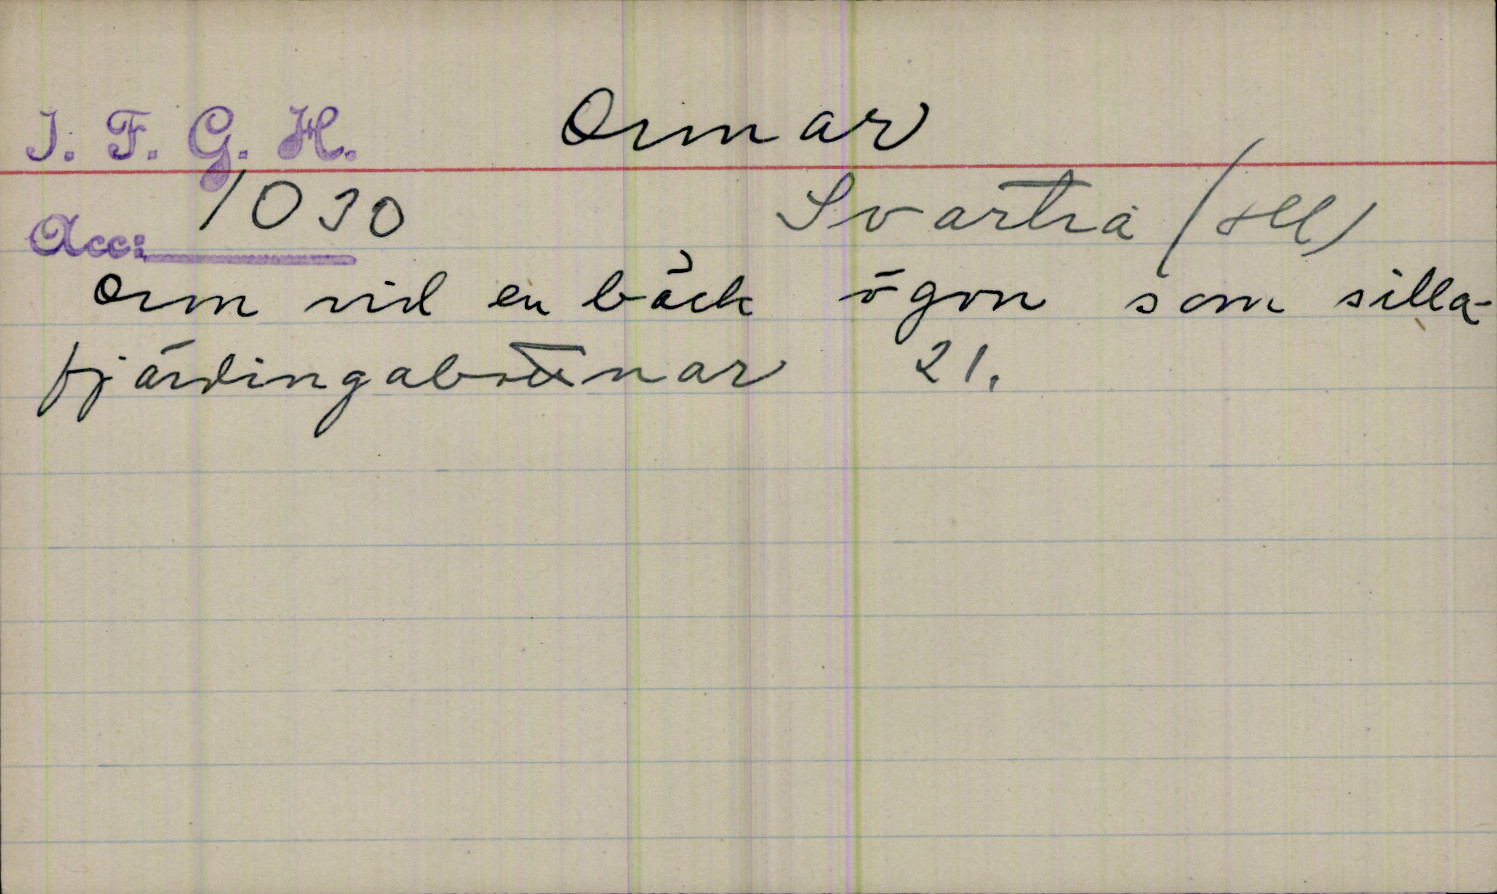 I. F. G. H. Ormar
Acc: 1030 Svartrå (Hll)
Orm vid en bäck ögon som silla-
fjärdingabottnar 21.